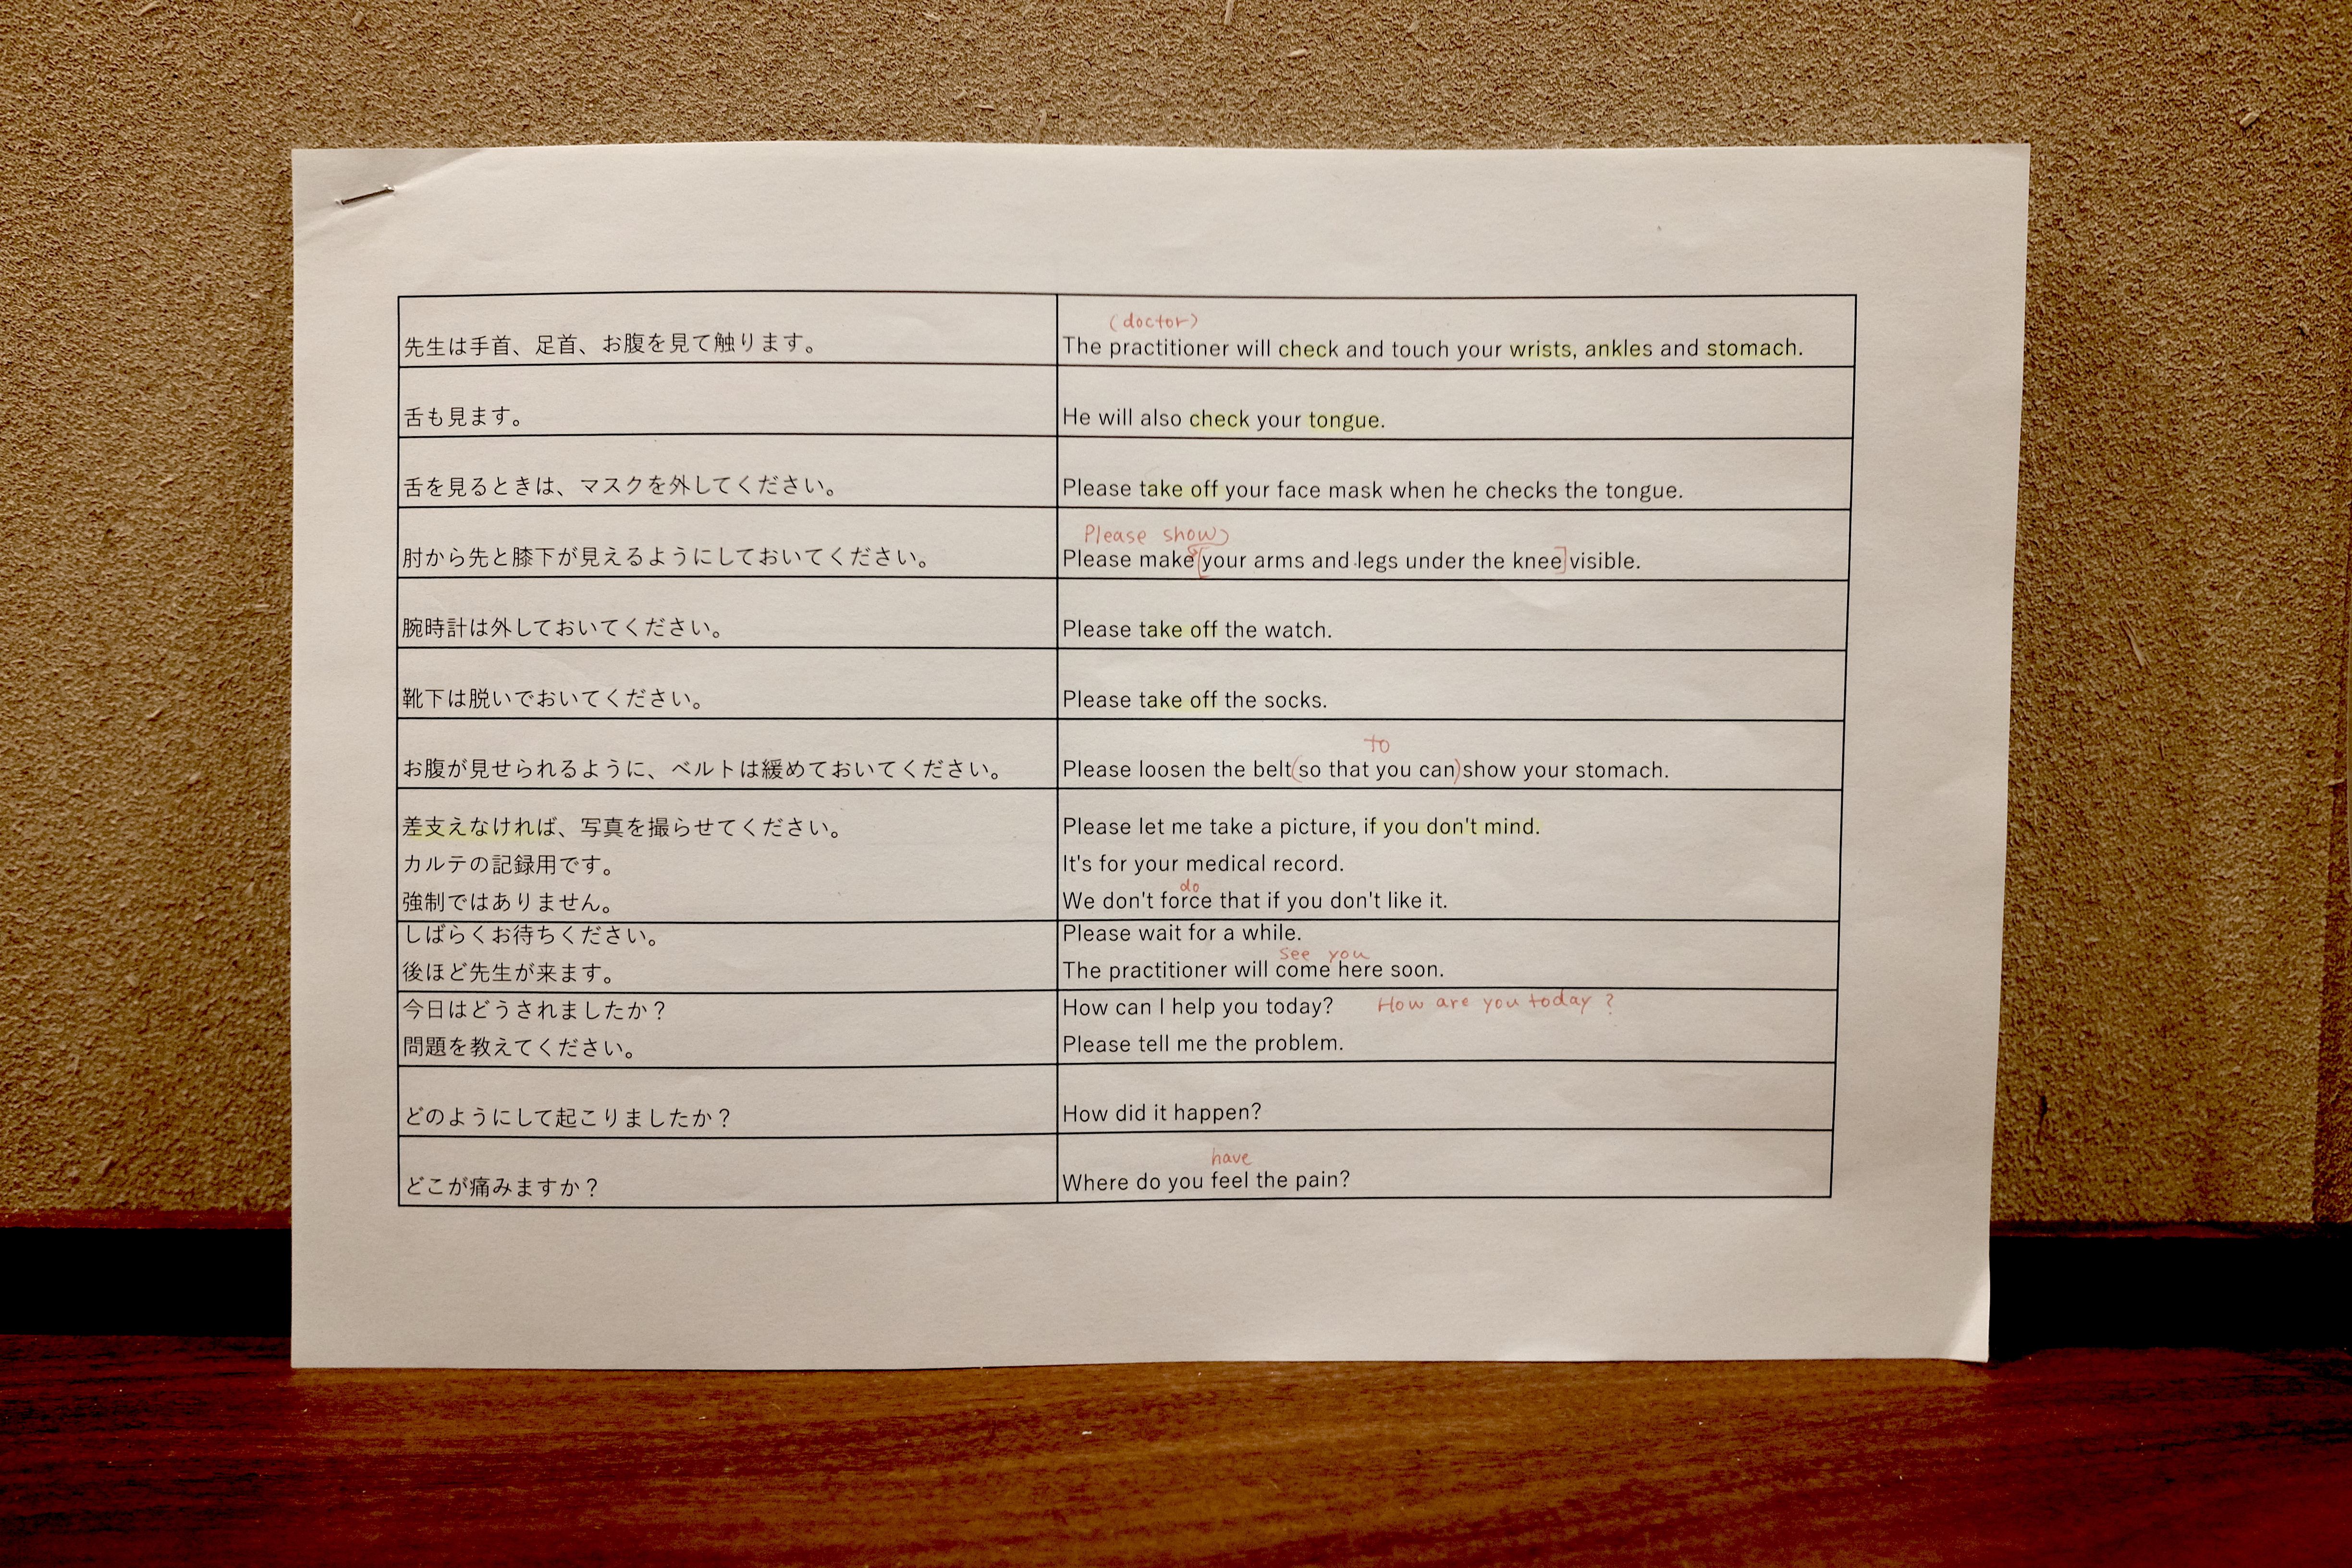 先生は手首、足首、お腹を見て触ります。
(doctor)
The practitioner will check and touch your wrists, ankles and stomach.
舌も見ます。
He will also check your tongue.
舌を見るときは、マスクを外してください。
Please take off your face mask when he checks the tongue.
肘から先と膝下が見えるようにしておいてください。
Please show
Please make [your arms and legs under the knee] visible.
腕時計は外しておいてください。
Please take off the watch.
靴下は脱いでおいてください。
Please take off the socks.
お腹が見せられるように、ベルトは緩めておいてください。
to
Please loosen the belt (so that you can) show your stomach.
差支えなければ、写真を撮らせてください。
Please let me take a picture, if you don't mind.
カルテの記録用です。
It's for your medical record.
強制ではありません。
do
We don't force that if you don't like it.
しばらくお待ちください。
Please wait for a while.
後ほど先生が来ます。
see you
The practitioner will come here soon.
今日はどうされましたか？
How can I help you today? How are you today?
問題を教えてください。
Please tell me the problem.
どのようにして起こりましたか？
How did it happen?
どこが痛みますか？
have
Where do you feel the pain?